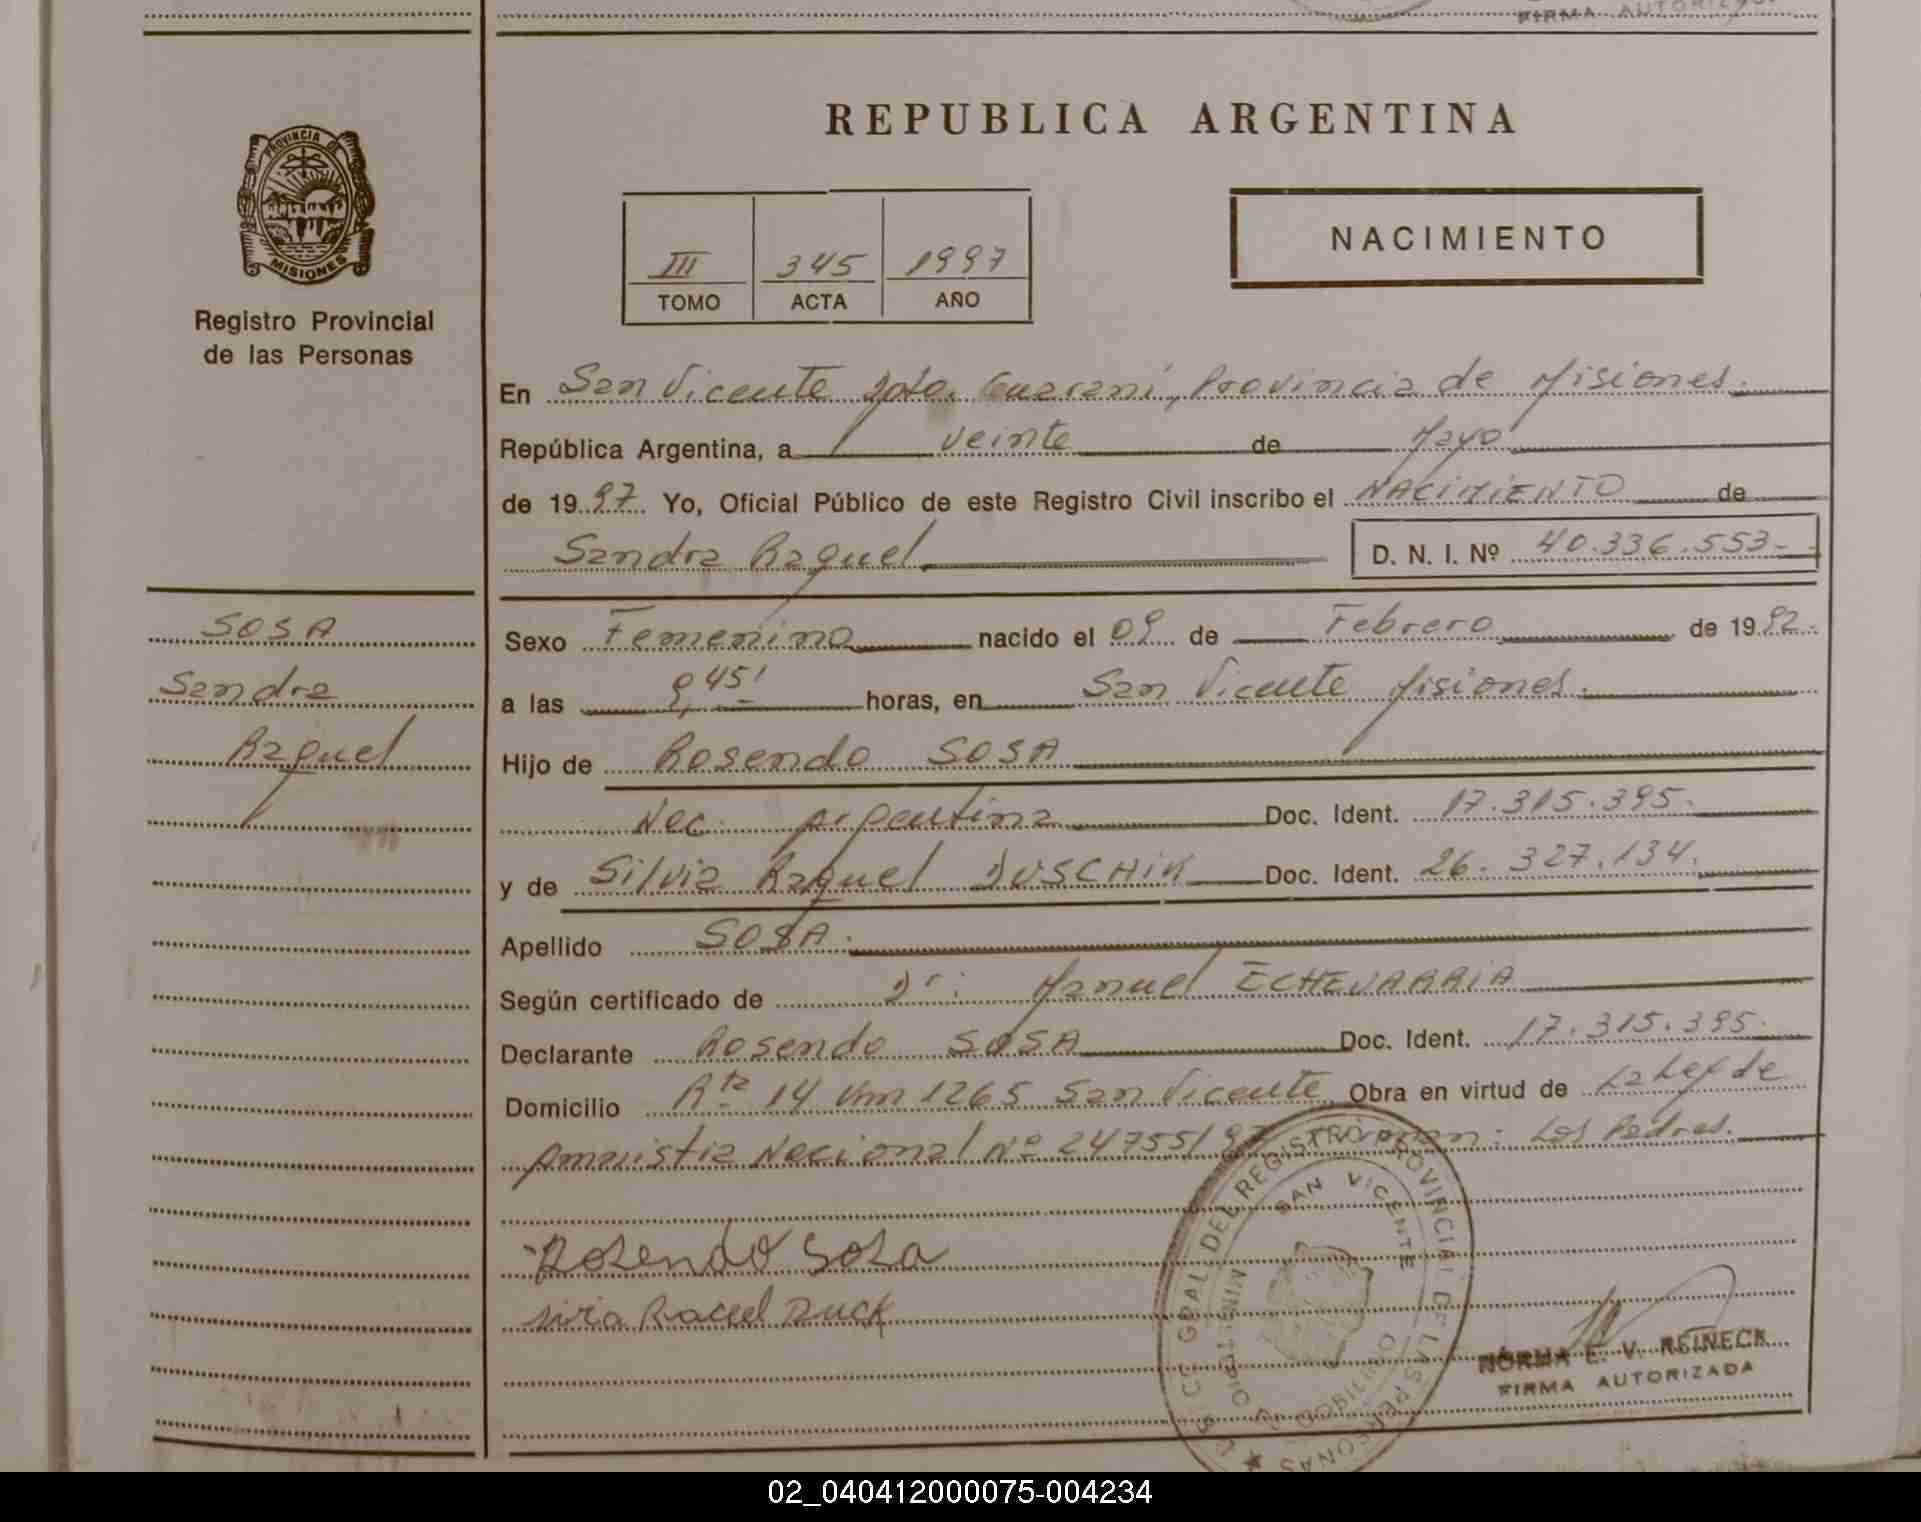 FIRMA AUTORIZADA
REPUBLICA ARGENTINA
PROVINCIA DE
MISIONES
Registro Provincial
de las Personas
NACIMIENTO
III 345 1997
TOMO ACTA AÑO
En San Vicente Dpto. Guaraní, Provincia de Misiones.
República Argentina, a veinte de Mayo
de 1997. Yo, Oficial Público de este Registro Civil inscribo el NACIMIENTO de
Sandra Raquel D. N. I. Nº 40.336.553-
SOSA
Sandra
Raquel
Sexo Femenino nacido el 09 de Febrero de 1992.
a las 9,45' horas, en San Vicente Misiones.
Hijo de Rosendo SOSA
Nac. Argentina Doc. Ident. 17.315.395.
y de Silvia Raquel DUSCHIK Doc. Ident. 26.327.134.
Apellido SOSA.
Según certificado de Dr: Manuel ECHEVARRIA
Declarante Rosendo SOSA Doc. Ident. 17.315.395.
Domicilio Rta 14 Km 1265 San Vicente Obra en virtud de La Ley de
Amnistia Nacional Nº 24755/97 : Los Padres.
Rosendo Sosa
Raquel Duck
REGISTRO PROVINCIAL DE LAS PERSONAS
SAN VICENTE
NORMA E. V. REINECK
FIRMA AUTORIZADA
02_040412000075-004234